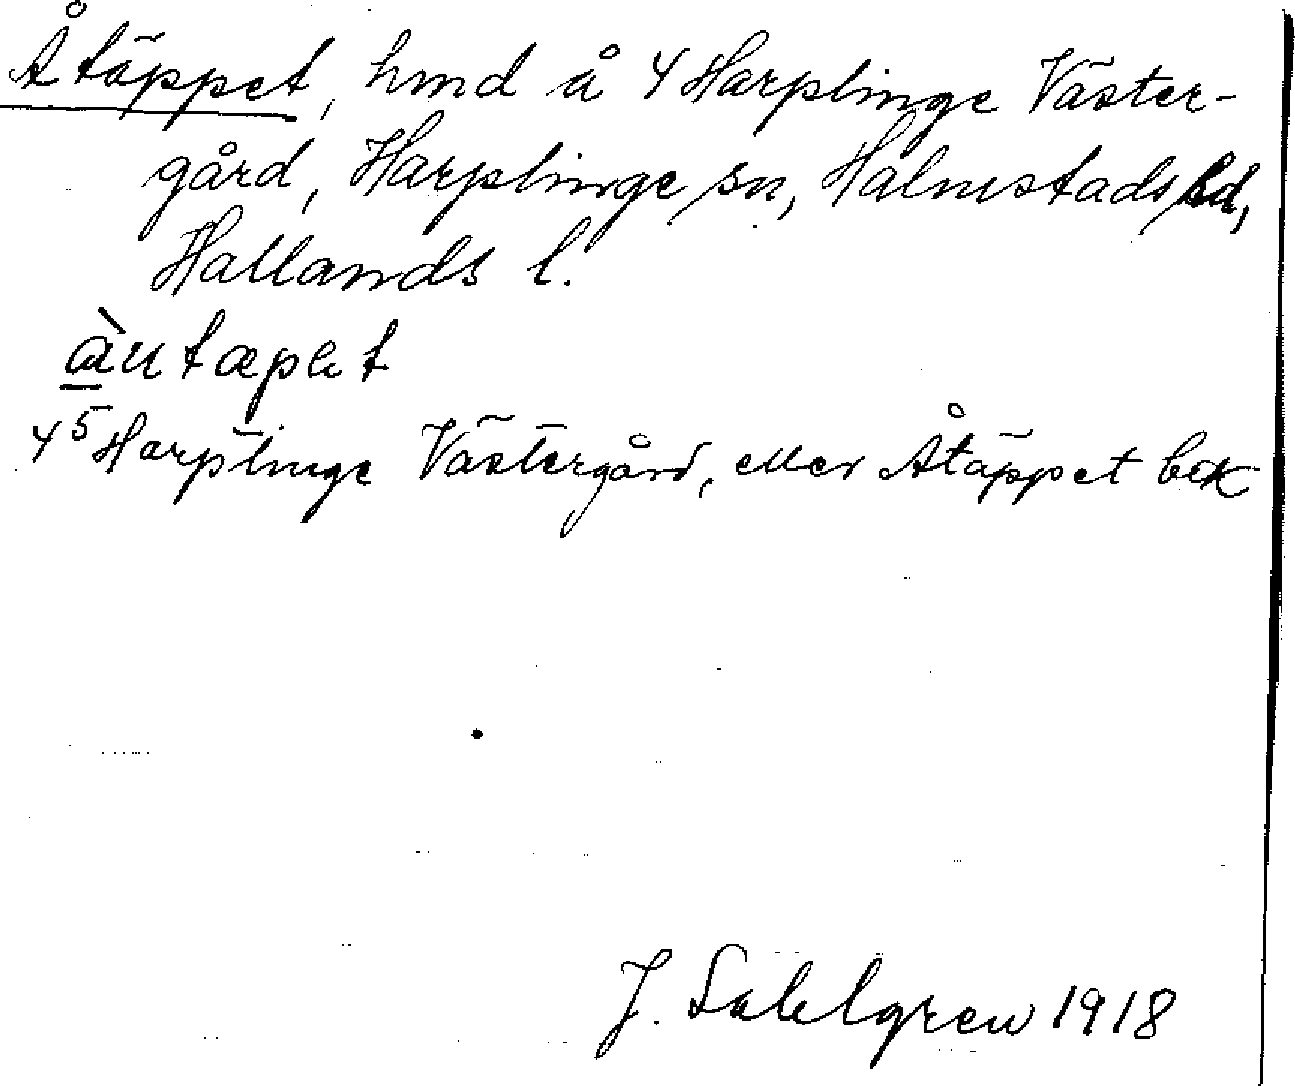 Åtäppet, hmd å 4 Harplinge Väster-
gård, Harplinge sn, Halmstads hd,
Hallands l.
4⁵ Harplinge Västergård, eller Åtäppet bok
J. Sahlgren 1918